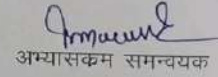 अभ्यासक्रम समन्वयक